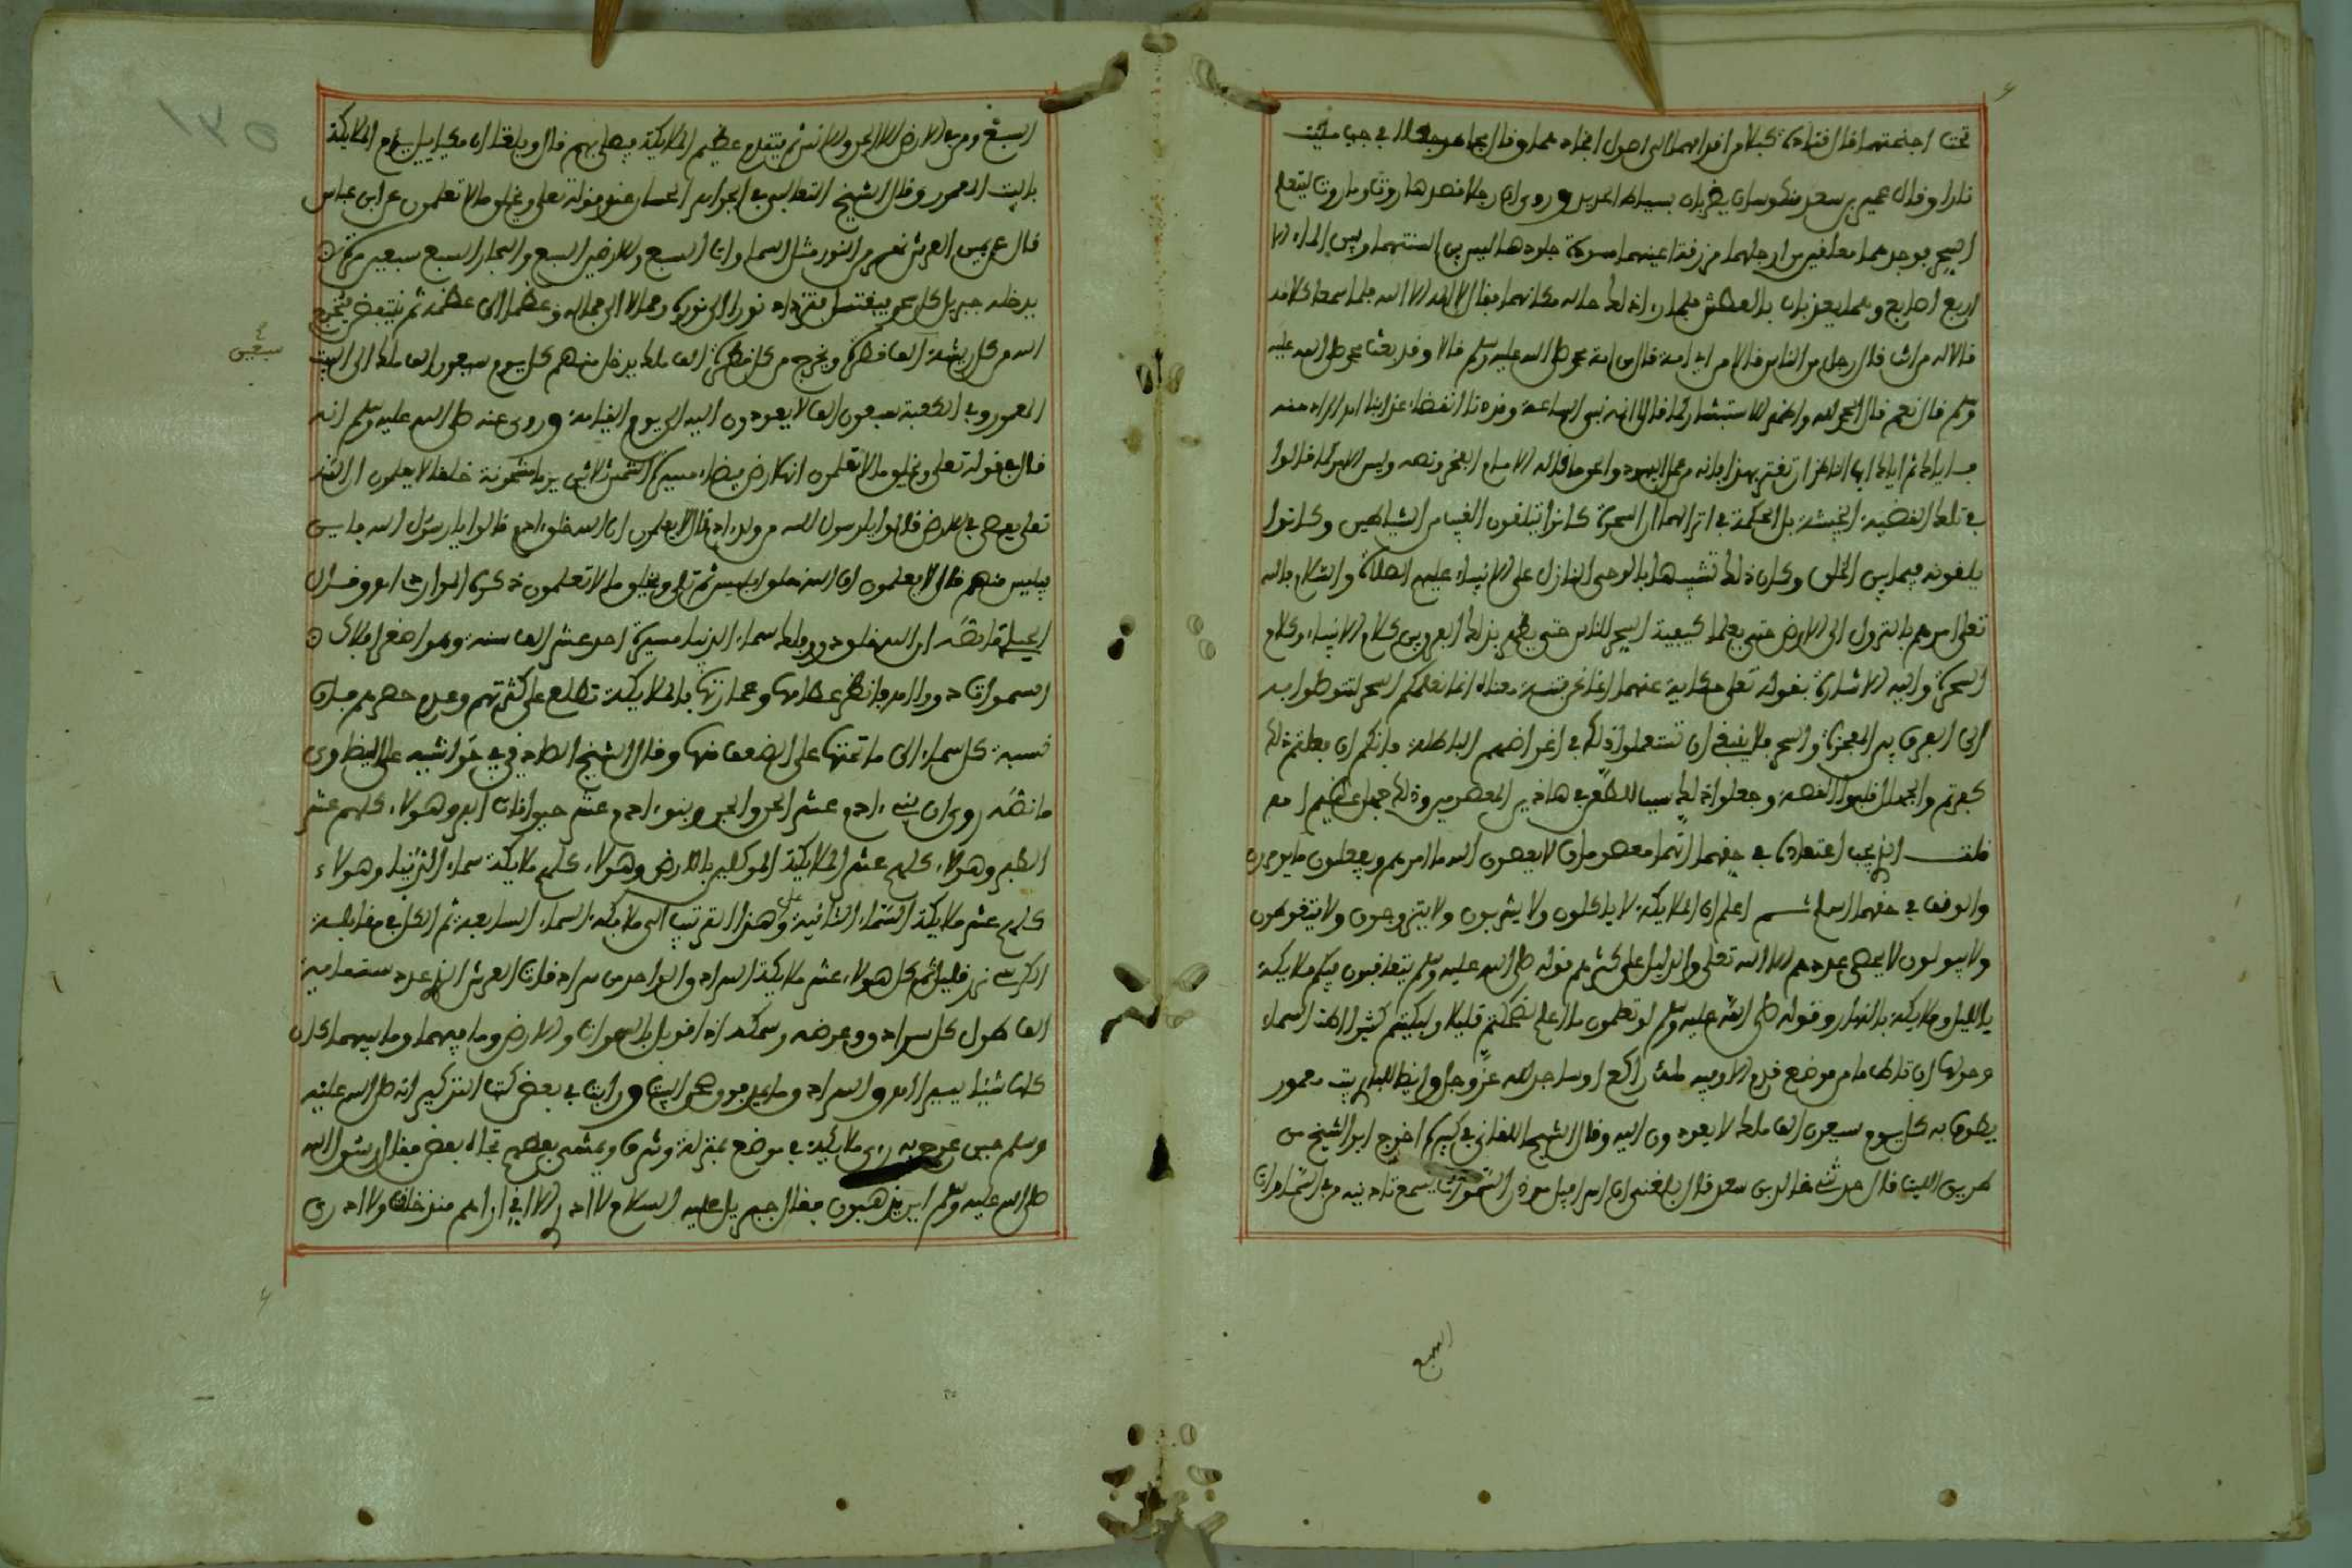 تحت اجنحتهما قال قتادة كبلا من اقدامهما الى اصول افخاذهما وقال مجاهد جعلا في جب ملئت
نارا وقال عمير بن سعد منكوسان يضربان بسياط الحديد وروى ان رجلا قصد هاروت وماروت ليتعلم
السحر فوجدهما معلقين من ارجلهما مزرقة اعينهما مسودة جلودهما ليس بين السنتهما وبين الماء الا
اربع اصابع وهما يعذبان بالعطش فلما راى ذلك هاله مكانهما فقال لا اله الا الله فلما سمعا كلامه
قالا له من انت قال رجل من الناس قالا من اي امة قال من امة محمد صلى الله عليه وسلم قالا وقد بعث محمد صلى الله عليه
وسلم قال نعم قالا الحمد لله واظهرا الاستبشار قال انه نبي الساعة وقد دنا انقضاء عذابنا
فاياك ثم اياك ايها الناظر ان تغتر بهذا فانه من عمل اليهود
في تلك القضية الحكمة في انزالهما ان السحرة كانوا يتلقون الغيب من الشياطين وكانوا
يلقونه فيما بين الخلق وكان ذلك تشبيها بالوحي النازل على الانبياء عليهم الصلاة والسلام فالله
تعلى امرهم بالنزول الى الارض حتى يعلما كيفية السحر للناس حتى يظهر بذلك الفرق بين كلام الانبياء وكلام
السحرة واليه الاشارة بقوله تعلى حكاية عنهما انما نحن فتنة معناه انما نعلمكم السحر لتتوصلوا به
الى الفرق بين المعجزة والسحر فلا ينبغي ان تستعملوا ذلك في اغراضكم الباطلة فانكم ان فعلتم ذلك
كفرتم والجهال قلبوا القصة وجعلوا ذلك سببا للطعن في هاذين المعصومين وذلك جهل عظيم
قلت الذي يجب اعتقاده في حقهما انهما معصومان لا يعصون الله ما امرهم ويفعلون ما يومرون
والوقف في حقهما اسلم اعلم ان الملايكة لا ياكلون ولا يشربون ولا يتزوجون ولا يتغوطون
ولا يبولون لا يحصي عددهم الا الله تعلى والدليل على كثرتهم قوله صلى الله عليه وسلم يتعاقبون فيكم ملايكة
بالليل وملايكة بالنهار وقوله صلى الله عليه وسلم لو تعلمون ما اعلم لضحكتم قليلا ولبكيتم كثيرا اطت السماء
وحق لها ان تئط ما من موضع قدم الا وفيه ملك راكع او ساجد لله عز وجل وايضا البيت معمور
يطوف به كل يوم سبعون الف ملك لا يعودون اليه وقال الشيخ اللقاني في كبيره اخرج ابو الشيخ من
طريق الليث قال حدثني خالد بن سعيد قال بلغني ان اسرافيل موذن السموات يسمع تاذينه من في السماوات
السبع
السبع ومن في الارض الا الجن والانس ثم يتقدم عظيم الملايكة يصلي بهم قال وبلغنا ان ميكاييل يؤم الملايكة
بالبيت المعمور وقال الشيخ الثعالبي في الجواهر الحسان عند قوله تعلى ويخلق ما لا تعلمون عن ابن عباس
قال عن يمين العرش نهر من النور مثل السماوات السبع والارضين السبع والبحار السبع سبعين مرة
يدخله جبريل كل سحر يغتسل فيزداد نورا الى نوره وجمالا الى جماله وعظما الى عظمه ثم ينتفض فيخرج
الله من كل ريشة الف قطرة ويخرج من كل قطرة الف ملك يدخل منهم كل يوم سبعون الف ملك الى البيت
سبعين
المعمور وفي الكعبة سبعون الفا لا يعودون اليه الى يوم القيامة وروى عنه صلى الله عليه وسلم انه
قال في قوله تعلى ويخلق ما لا تعلمون انها ارض بيضاء مسيرة الشمس ثلاثين يوما مشحونة خلقا لا يعلمون ان الله
تعلى يعصى في الارض قالوا يا رسول الله من ولد ادم قال لا يعلمون ان الله خلق ادم قالوا يا رسول الله فاين
ابليس منهم قال لا يعلمون ان الله خلق ابليس ثم تلى ويخلق ما لا تعلمون ذكره الماوردي وقال
ما نصه ان الله خلق دون سماء الدنيا مسيرة احد عشر الف سنة وهو اصغر افلاك
السموات فانظر عظامها وعمارتها بالملايكة تطلع على كثرتهم وعدم حصرهم فان
نسبة كل سماء الى ما تحتها على الضعف منها وقال الشيخ في حواشيه على البيضاوي
ما نصه روى ان بني ادم عشر الجن والجن وبنو ادم عشر حيوانات البر وهولاء كلهم عشر
الطير وهولاء كلهم عشر الملايكة الموكلين بالارض وهولاء كلهم ملايكة سماء الدنيا وهولاء
كلهم عشر ملايكة السماء الثانية وهذا الترتيب الى ملايكة السماء السابعة ثم الكل في مقابلة
الكرسي نزر قليل ثم كل هولاء عشر ملايكة السرادق الواحد من سرادقات العرش التي عددها ستماية
الف طول كل سرادق وعرضه وسمكه اذا قوبل بالسموات والارض وما فيهما وما بينهما كان
كلها شيئا يسيرا ورايت في بعض كتب التذكير انه صلى الله عليه
وسلم حين عرج به راى ملايكة في موضع بمنزلة وشرف ويمشي بعضهم تجاه بعض فقال رسول الله
صلى الله عليه وسلم اين يذهبون فقال جبريل عليه السلام لا ادري الا اني اراهم منذ خلقت ولا ارى